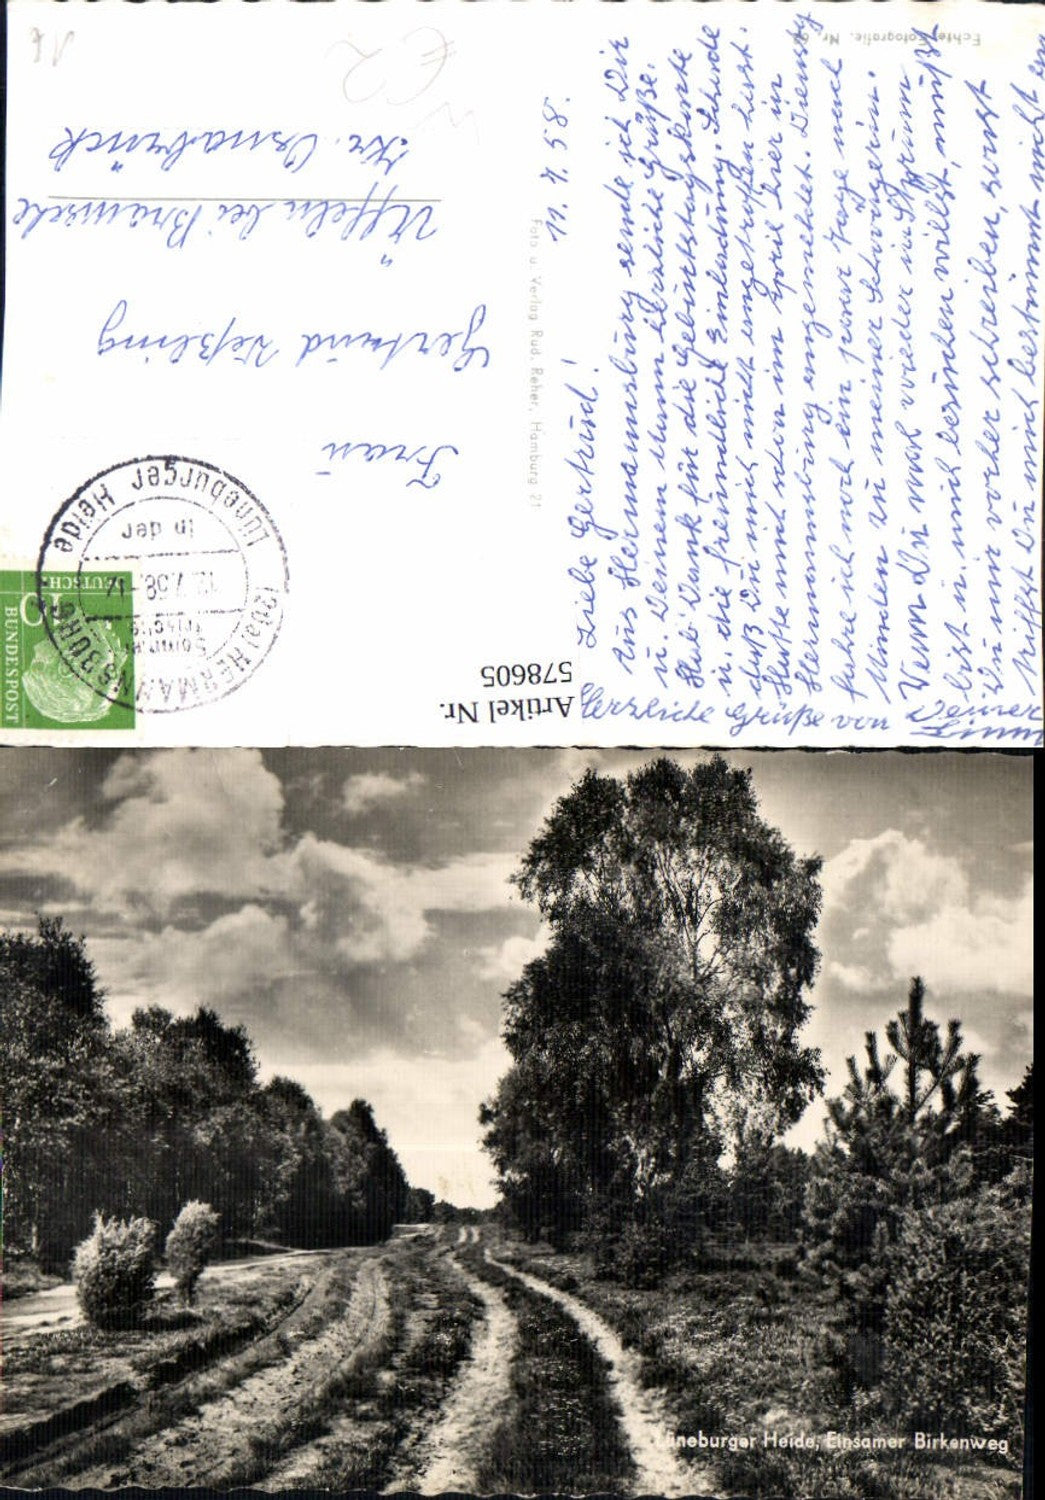 Lüneburger Heide, Einsamer Birkenweg
Artikel Nr.
578605
Echte Fotografie. Nr.
Foto u. Verlag Rud. Reher, Hamburg 21
11. 7. 58.
Liebe Gertrud!
Aus Hermannsburg sende ich Dir
u. Deinem Mann herzliche Grüße.
Hab Dank für die Geburtstagskarte
u. die freundliche Einladung. Schade
daß Du mich nicht angetroffen hast.
Hatte mich schon im April hier in
Hermannsburg angemeldet. Dienstag
fahre ich noch ein paar Tage nach
Minden zu meiner Schwägerin.
Wenn Du mal wieder in
bist u. mich besuchen willst, mußt
Du mir vorher schreiben, sonst
triffst Du mich bestimmt nicht an
Herzliche Grüße von Deiner
Frau
Gertrud
Üffeln bei Bramsche
Kr. Osnabrück
(20a) HERMANNSBURG
Lüneburger Heide
in der
12.7.58.-17
Sommer
frische
10
DEUTSCHE
BUNDESPOST
€2